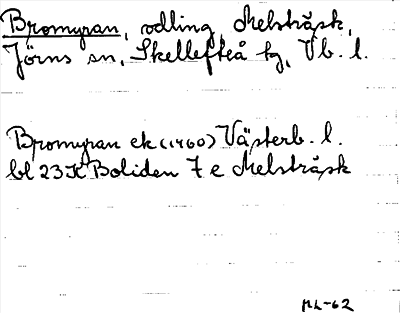 Bromyran, odling, Melsträsk,
Jörns sn, Skellefteå tg, Vb. l.
Bromyran ek (1960) Västerb. l.
bl 23 K Boliden 7 e Melsträsk
ML-62